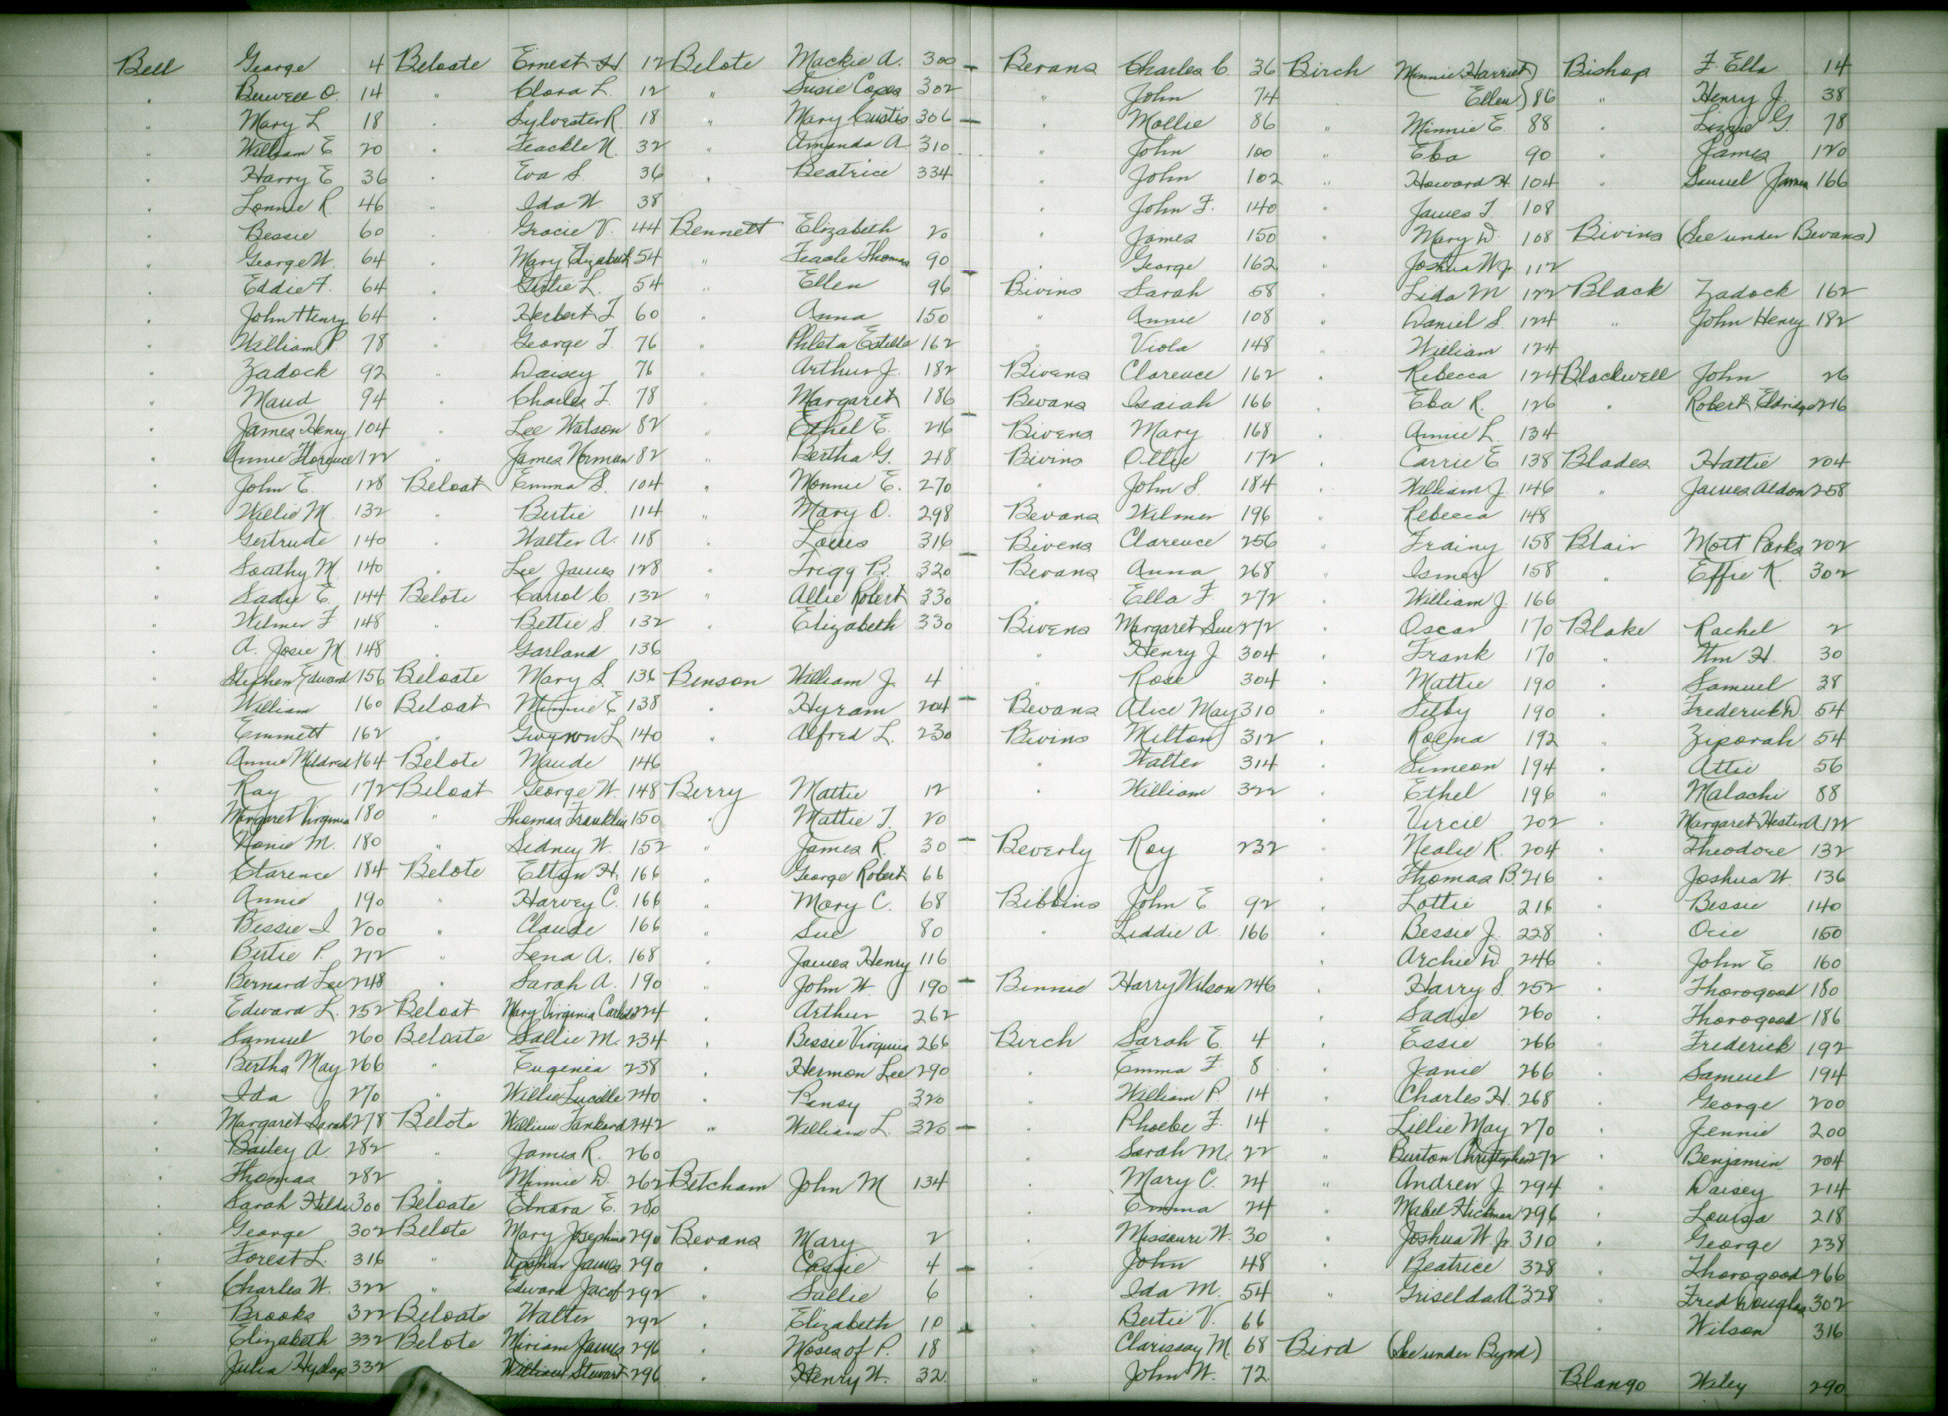 Bell George 4
" Burwell O. 14
" Mary L 18
" William E 20
" Harry E 36
" Lonnie R 46
" Bessie 60
" George W. 64
" Eddie F. 64
" John Henry 64
" William P. 78
" Zadock 92
" Maud 94
" James Henry 104
" Annie Florence 122
" John E 128
" Willie M. 132
" Gertrude 140
" Southy M. 140
" Sadie E. 144
" Wilmer F 148
" A. Josie M 148
" Stephen Edward 156
" William 160
" Emmett 162
" Annie Mildred 164
" Ray 172
" Margaret Virginia 180
" Nonie M. 180
" Clarence 184
" Annie 190
" Bessie I 200
" Bertie P. 212
" Bernard Lee 248
" Edward L. 252
" Samuel 260
" Bertha May 266
" Ida 270
" Margaret Sarah 278
" Bailey A. 282
" Thomas 282
" Sarah 300
" George 302
" Forest L. 316
" Charles W. 322
" Brooks 322
" Elizabeth 332
" Julia Hyslop 332
Beloate Ernest H 12
" Clara L. 12
" Sylvester R. 18
" Teackle N. 32
" Eva S. 36
" Ida W 38
" Gracie V. 44
" Mary Elizabeth 54
" L. 54
" Herbert T 60
" George T. 76
" Daisey 76
" Charles T. 78
" Lee Watson 82
" James Norman 82
Beloat Emma S. 104
" Bertie 114
" Walter A. 118
" Lee James 128
Belote Carrol C 132
" Bettie S. 132
" Garland 136
Beloate Mary S. 136
Beloat Minnie E 138
" Gwynn L 140
Belote Maude 146
Beloat George W 148
" Thomas Franklin 150
" Sidney W. 152
Belote Elton H. 166
" Harvey C. 166
" Claude 166
" Lena A. 168
" Sarah A. 190
Beloat Mary Virginia 224
Beloate Sallie M. 234
" Eugenia 238
" Willie Lucille 240
Belote William Tankard 242
" James R. 260
" Minnie D. 262
Beloate Elnora E. 280
Belote Mary Josephine 290
" Upshur James 290
" Edward Jacob 292
Beloate Walter 292
Belote Miriam James 296
" William Stewart 296
Belote Mackie A. 300
" Susie Copes 302
" Mary Custis 306
" Amanda A. 310
" Beatrice 334
Bennett Elizabeth 20
" Teagle Thomas 90
" Ellen 96
" Anna 150
" Phleta Estelle 162
" Arthur J. 182
" Margaret 186
" Ethel E. 216
" Bertha G. 248
" Nonnie E. 270
" Mary O. 298
" Louis 316
" Trigg B. 320
" Allie Robert 330
" Elizabeth 330
Benson William J. 4
" Hyram 204
" Alfred L. 230
Berry Mattie 12
" Mattie T. 20
" James R. 30
" George Robert 66
" Mary C. 68
" Sue 80
" James Henry 116
" John W. 190
" Arthur 262
" Bessie Virginia 266
" Hermon Lee 290
" Pensy 320
" William L. 320
Betcham John M 134
Bevans Mary 2
" Cassie 4
" Sallie 6
" Elizabeth 10
" Moses of P. 18
" Henry W. 32
Bevans Charles C. 36
" John 74
" Mollie 86
" John 100
" John 102
" John F. 140
" James 150
" George 162
Bivins Sarah 58
" Annie 108
" Viola 148
Bivens Clarence 162
Bevans Isaiah 166
Bivens Mary 168
Bivins Ollie 172
" John S. 184
Bevans Wilmer 196
Bivens Clarence 256
Bevans Anna 268
" Ella F. 272
Bivens Margaret Sue 272
" Henry J 304
" Rose 304
Bevans Alice May 310
Bivins Milton 312
" Walter 314
" William 322
Beverly Roy 232
Bibbins John E 92
" Liddie A. 166
Binnie Harry Wilson 246
Birch Sarah E. 4
" Emma F. 8
" William P. 14
" Phoebe F. 14
" Sarah M. 22
" Mary C. 24
" Emma 24
" Missouri W. 30
" John 48
" Ida M. 54
" Bertie V. 66
" Clarissay M. 68
" John W. 72
Birch Minnie Harriet)
Ellen) 86
" Minnie E. 88
" Eba 90
" Howard H. 104
" James T. 108
" Mary D. 108
" Joshua W. Jr. 112
" Lida M 122
" Daniel S. 124
" William 124
" Rebecca 124
" Eba R. 126
" Annie L. 134
" Carrie E 138
" William J. 146
" Rebecca 148
" Frainy 158
" Ismey 158
" William J. 166
" Oscar 170
" Frank 170
" Mattie 190
" Selby 190
" Roena 192
" Simeon 194
" Ethel 196
" Vircie 202
" Nealie R. 204
" Thomas B. 216
" Lottie 216
" Bessie J. 228
" Archie D. 246
" Harry S. 252
" Sadie 260
" Essie 266
" Janie 266
" Charles H. 268
" Lillie May 270
" Burton Christopher 272
" Andrew J. 294
" Mabel Hickman 296
" Joshua W. Jr 310
" Beatrice 328
" Griselda A. 328
Bird (See under Byrd)
Bishop F. Ella 14
" Henry J. 38
" Lizzie G. 78
" James 120
" Samuel James 166
Bivins (See under Bevans)
Black Zadock 162
" John Henry 182
Blackwell John 26
" Robert Eldridge 216
Blades Hattie 204
" James Aldon 258
Blair Mott Parks 202
" Effie K. 302
Blake Rachel 2
" Wm H. 30
" Samuel 38
" Frederick D 54
" Ziporah 54
" Attie 56
" Malachi 88
" Margaret Hester A 122
" Theodore 132
" Joshua W. 136
" Bessie 140
" Ocie 150
" John E. 160
" Thorogood 180
" Thorogood 186
" Frederick 192
" Samuel 194
" George 200
" Jennie 200
" Benjamin 204
" Daisey 214
" Louisa 218
" George 238
" Thorogood 266
" Fred Douglas 302
" Wilson 316
Blango Wiley 290